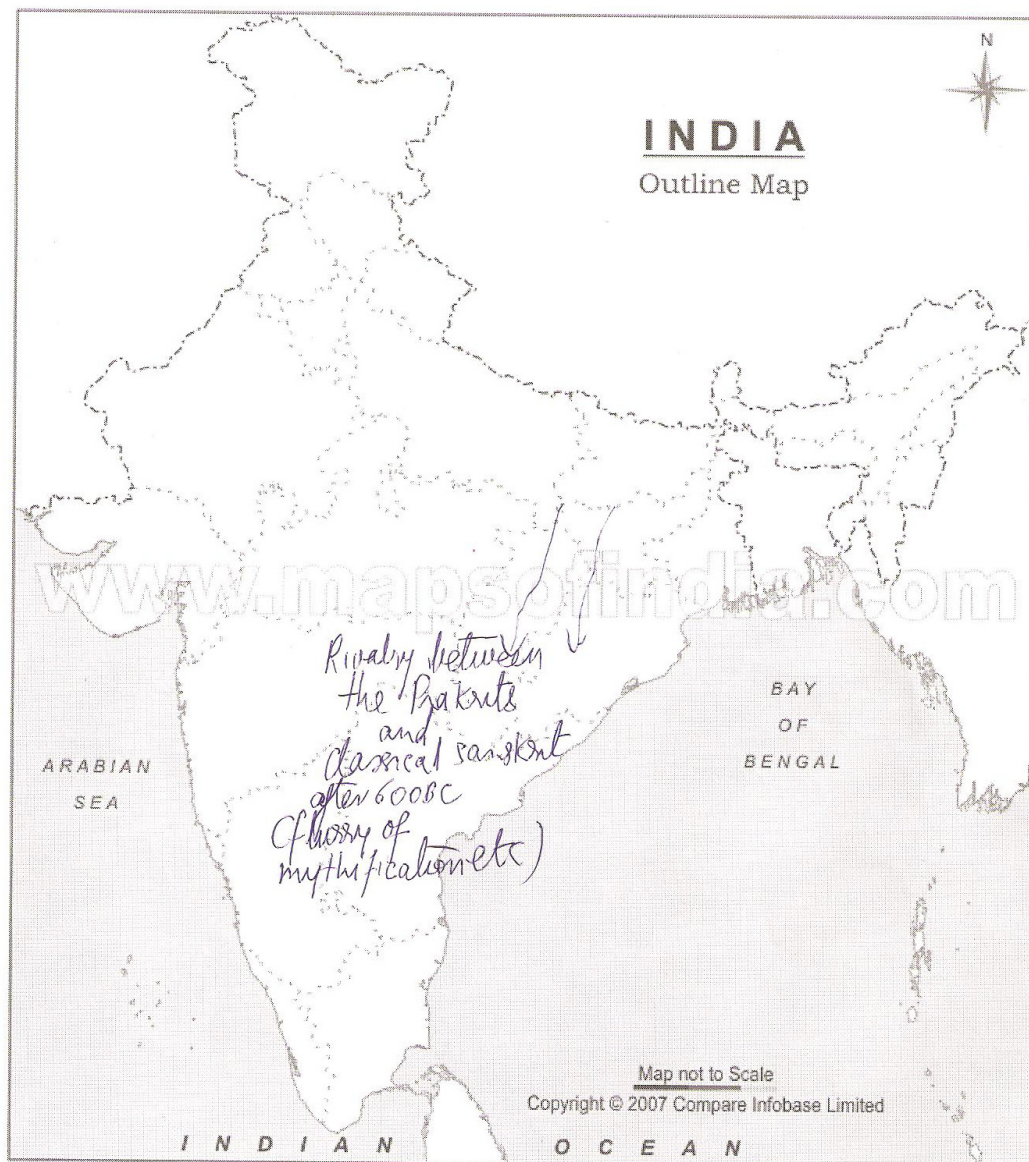 N
INDIA
Outline Map
www.mapsofindia.com
Rivalry between
the Prakrits
and
classical sanskrit
after 600BC
(Theory of
mythification etc)
ARABIAN
SEA
BAY
OF
BENGAL
Map not to Scale
Copyright © 2007 Compare Infobase Limited
INDIAN OCEAN